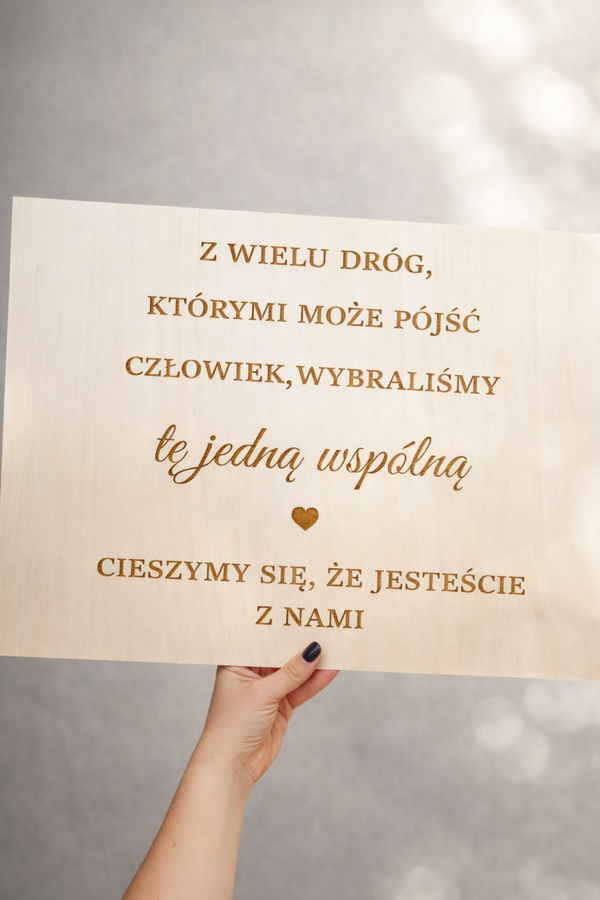 Z WIELU DRÓG,
KTÓRYMI MOŻE PÓJŚĆ
CZŁOWIEK, WYBRALIŚMY
tę jedną wspólną
CIESZYMY SIĘ, ŻE JESTEŚCIE
Z NAMI